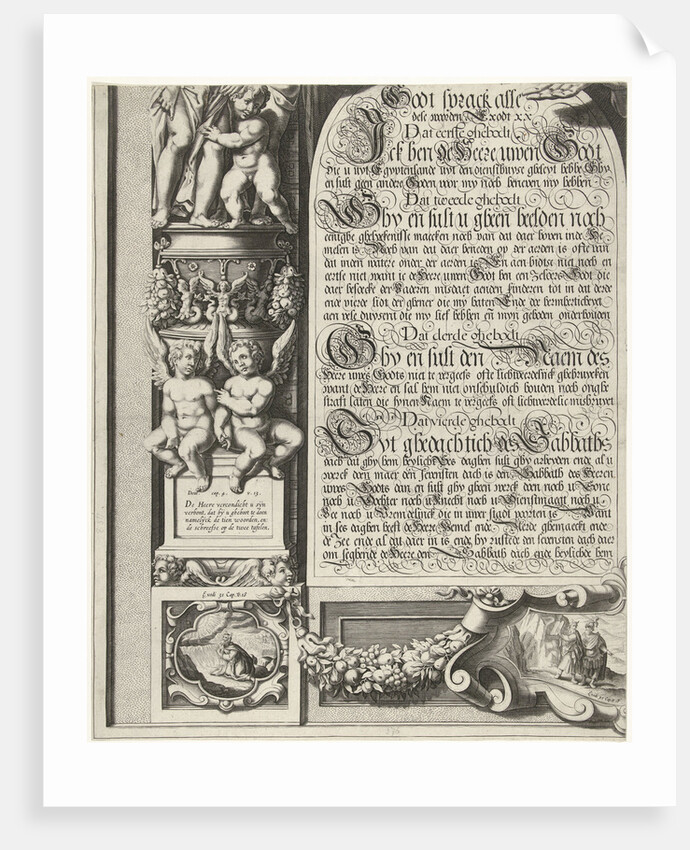 Godt sprack alle
dese woorden Exodi xx
Dat eerste ghebodt
Ick ben de Heere uwen Godt
die u uyt Egyptenlande uyt den diensthuyse gheleyt hebbe Ghy
en sult geen andere Goden voor my noch beneven my hebben
Dat tweede ghebodt
Ghy en sult u gheen beelden noch
eenighe ghelyckenisse maecken noch van dat daer boven inde He
melen is Noch van dat daer beneden op der aerden is ofte van
dat inden watere onder der aerden is En aen bidtse niet noch en
eertse niet want ic de Heere uwen Godt ben een Godt die
daer besoecke der Vaderen misdaet aenden kinderen tot in dat derde
ende vierde lidt der ghener die my haten Ende doe bermherticheyt
aen vele duysent die my lief hebben en myn geboden onderhouden
Dat derde ghebodt
Ghy en sult den Naem des
Heere uwes Godts niet te vergeefs ofte lichtveerdelick ghebruycken
want de Heere en sal hem niet onschuldich houden noch onghe
straft laten die synen Naem te vergeefs oft lichtverdelic misbruyct
Dat vierde ghebodt
Syt ghedachtich des Sabbaths
dach dat ghy hem heylicht Ses daghen sult ghy arbeyden ende al u
werck doen maer den sevensten dach is den Sabbath des Heeren
uwes Godts dan en sult ghy gheen werck doen noch u Sone
noch u Dochter noch u Knecht noch u Dienstmaegt noch u
Vee noch u Vremdelinck die in uwer stadt poorten is Want
in ses daghen heeft de Heere Hemel ende Eerde ghemaeckt ende
de Zee ende al dat daer in is ende hy rustede den sevensten dach daer
om seghende de Heere den Sabbath dach ende heylichde hem
Deut cap. 4. v. 13.
De Heere vercondicht u syn
verbont, dat hy u gheboot te doen
namelyck de tien woorden, en
de schreefse op de twee tafelen.
Exodi 31 Cap. V. 18